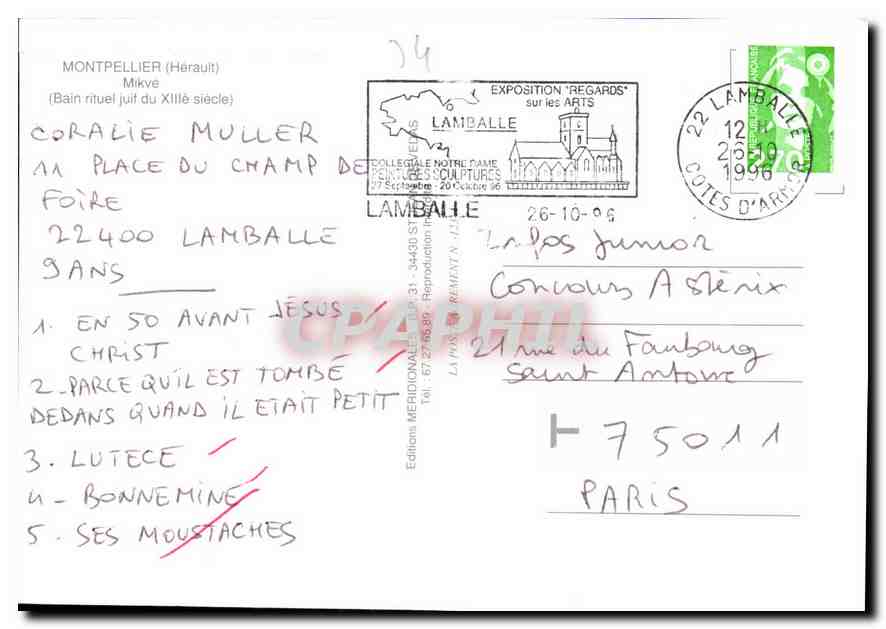 MONTPELLIER (Hérault)
Mikvé
(Bain rituel juif du XIIIè siècle)
CORALIE MULLER
11 PLACE DU CHAMP DE
FOIRE
22400 LAMBALLE
9 ANS
1. EN 50 AVANT JÉSUS-
CHRIST
2_PARCE QU'IL EST TOMBÉ
DEDANS QUAND IL ETAIT PETIT
3. LUTECE
4_ BONNEMINE
5. SES MOUSTACHES
Editions MERIDIONALES
B.P. 31 - 34430 ST
Tél. : 67.27.65.89 - Reproduction
LA POSTE
24
EXPOSITION "REGARDS"
sur les ARTS
LAMBALLE
COLLEGIALE NOTRE DAME
PEINTURES SCULPTURES
27 Septembre - 20 Octobre 96
LAMBALLE 26-10-96
22 LAMBALLE
12 H
26-10
1996
COTES D'ARMOR
2,70
Infos Junior
Concours Astérix
21 rue du Faubourg
Saint Antoine
T 75011
PARIS
CPAPHIL